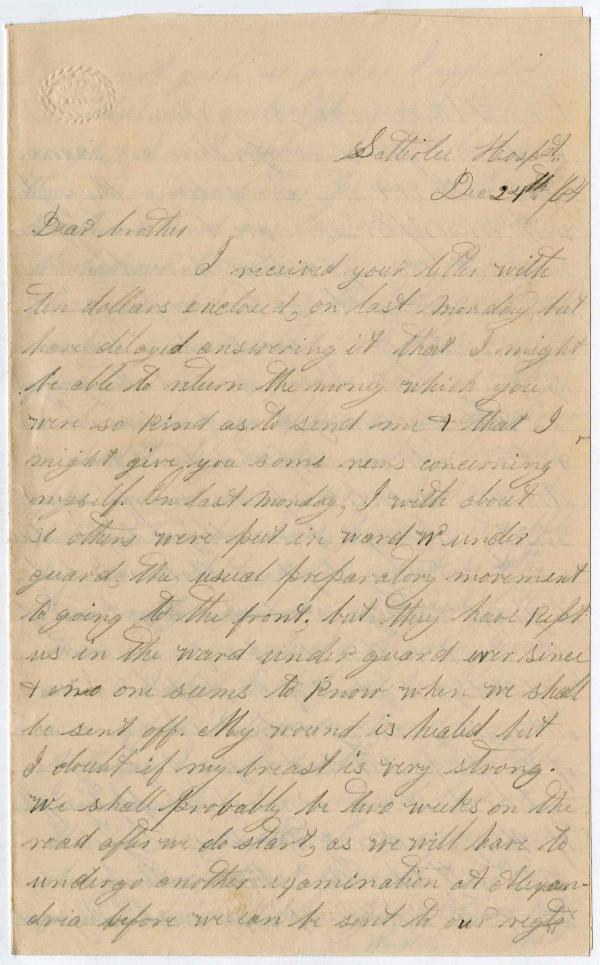 Satterlee Hospt.
Dec 24th /64
Dear brother
I received your letter with
ten dollars enclosed, on last Monday but
have delayed answering it that I might
be able to return the money which you
were so kind as to send me & that I
might give you some news concerning
myself. On last Monday, I with about
30 others were put in ward W under
guard, the usual preparatory movement
to going to the front, but they have kept
us in the ward under guard ever since
& no one seems to know when we shall
be sent off. My wound is healed but
I doubt if my breast is very strong.
We shall probably be two weeks on the
road after we do start, as we will have to
undergo another examination at Alexan-
dria before we can be sent to our regts